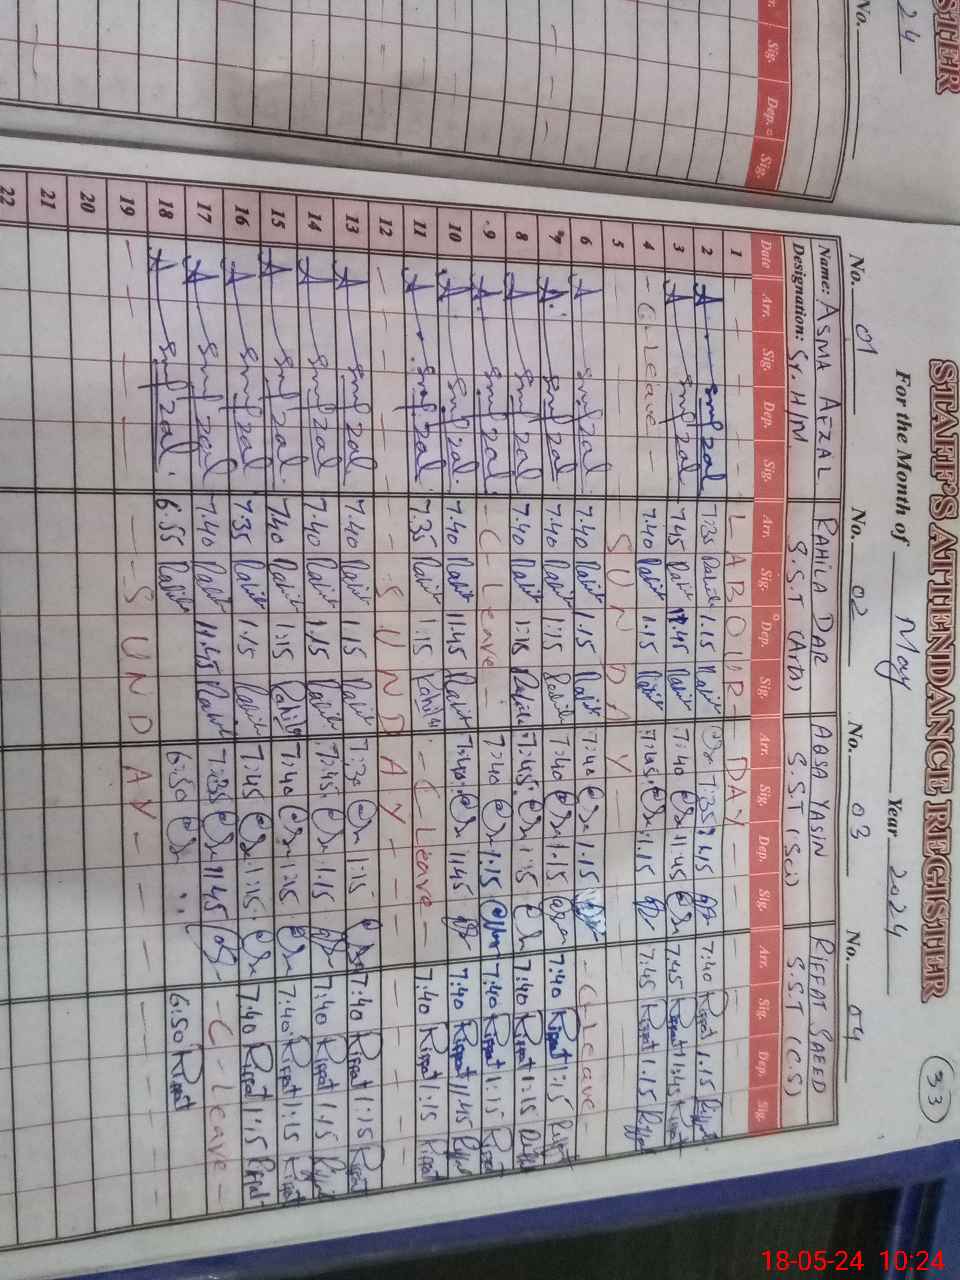 STAFF'S ATTENDANCE REGISTER
33
For the Month of May Year 2024
No. 01 No. 02 No. 03 No. 04
Name: ASMA AFZAL RAHILA DAR AQSA YASIN RIFFAT SAEED
Designation: Sr. H/M S.S.T (Arts) S.S.T (Sci) S.S.T (C.S)
Date Arr. Sig. Dep. Sig. Arr. Sig. Dep. Sig. Arr. Sig. Dep. Sig. Arr. Sig. Dep. Sig.
1 LABOUR DAY
2 7:35 1.15 7:35 7:40 Riffat 1.15
3 7.45 11.45 7:40 11:45 7:45 Riffat 11:45
4 C-Leave 7.40 1.15 7:45 1.15 7:45 Riffat 1.15
5 SUNDAY
6 7.40 1.15 7:40 1.15 C-Leave
7 7.40 1:15 7:40 1.15 7:40 Riffat 1:15
8 7.40 1:15 7:45 1:15 7:40 Riffat 1:15
9 C-Leave 7:40 1.15 7:40 Riffat 1:15 Riffat
10 7.40 11.45 7:40 11:45 7:40 Riffat 11:45
11 7.35 1:15 C Leave 7:40 Riffat 1:15 Riffat
12 SUNDAY
13 7.40 1.15 7:30 1:15 7:40 Riffat 1:15 Riffat
14 7.40 1.15 7:45 1.15 7:40 Riffat 1.15
15 7.40 1:15 7:40 1:25 7:40 Riffat 1:15 Riffat
16 7.35 1.15 7:45 1:15 7:40 Riffat 1:15 Riffat
17 7.40 11.45 7:35 11:45 C-Leave
18 6.55 6:50 6:50 Riffat
19 SUNDAY
20
21
22
STER
24
No.
Sig. Dep. Sig.
18-05-24 10:24